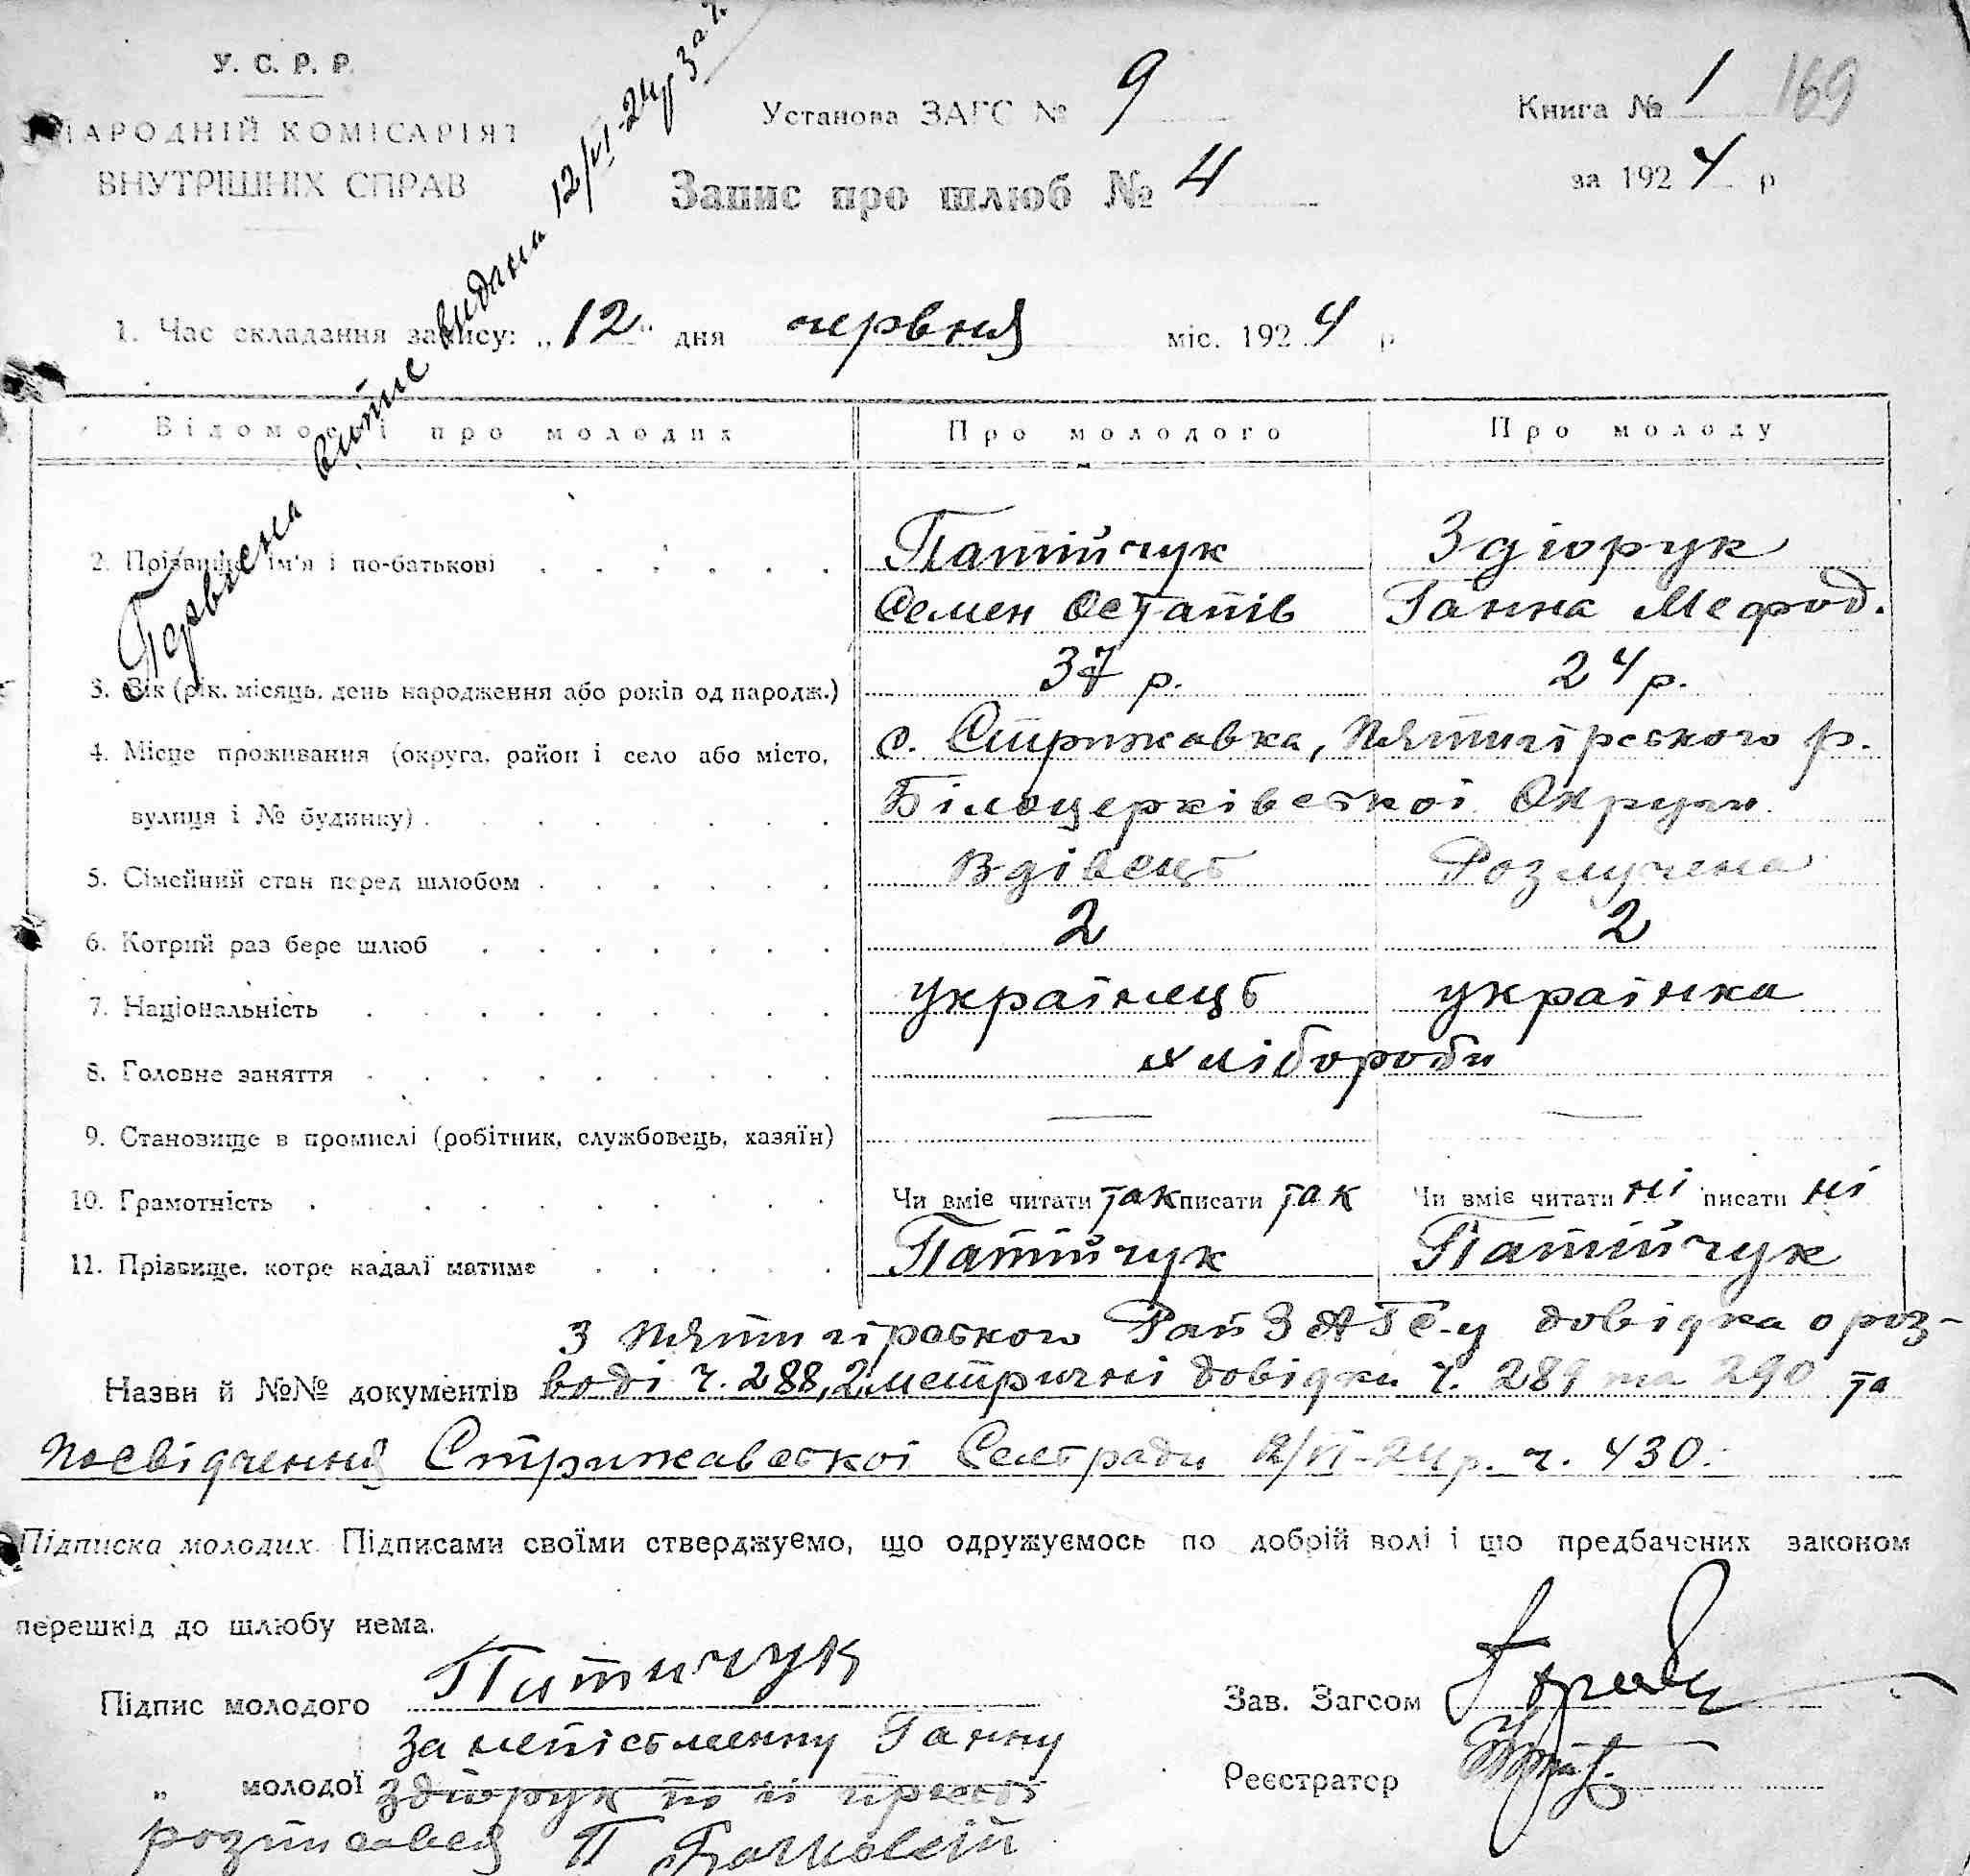 У. С. Р. Р.
НАРОДНІЙ КОМІСАРІЯТ
ВНУТРІШНІХ СПРАВ
Установа ЗАГС № 9
Запис про шлюб № 4
Книга № 1 169
за 1924 р
Первісна витис видана 12/VI-24р за ч.
1. Час складання запису: „12" дня червня міс. 1924 р
Відомості про молодих Про молодого Про молоду
2. Прізвище, ім'я і по-батькові Патійчук Здіорук
Семен Остапів Ганна Мефод.
3. Вік (рік, місяць, день народження або років од народж.) 37 р. 24 р.
4. Місце проживання (округа, район і село або місто, с. Стрижавка, Пятигірського р.
вулиця і № будинку) Білоцерківської Округи
5. Сімейний стан перед шлюбом Вдівець Розлучена
6. Котрий раз бере шлюб 2 2
7. Національність українець українка
8. Головне заняття хлібороби
9. Становище в промислі (робітник, службовець, хазяїн) — —
10. Грамотність Чи вміє читати так писати так Чи вміє читати ні писати ні
11. Прізвище, котре надалі матиме Патійчук Патійчук
З Пятигірського РайЗАГС-у довідка о роз-
Назви й №№ документів воді ч. 288, 2 метричні довідки ч. 289 та 290 та
посвідчення Стрижавської Сельради 12/VI-24 р. ч. 430.
Підписка молодих. Підписами своїми стверджуємо, що одружуємось по добрій волі і що предбачених законом
перешкід до шлюбу нема.
Підпис молодого Питичук
Зав. Загсом
за непісьменну Ганну
„ молодої Здіорук по її прозьбі
Реєстратор
розписався П